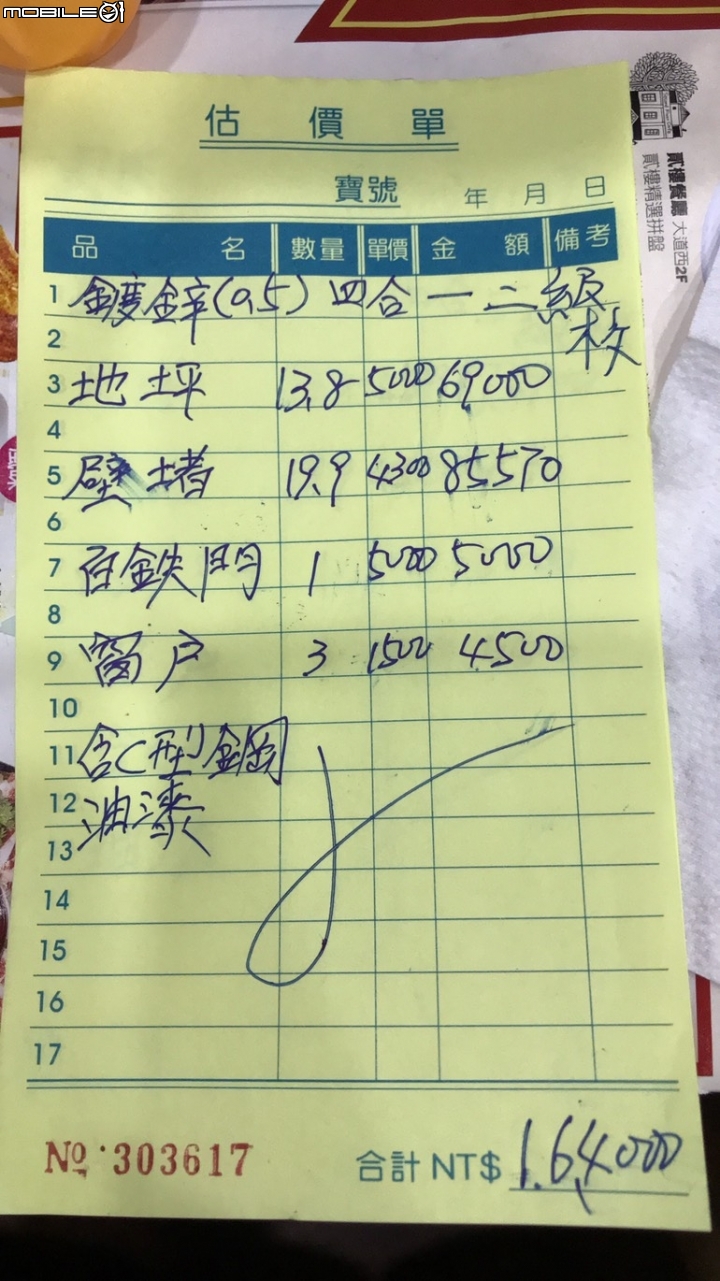 MOBILE01
估價單
寶號 年 月 日
品名 數量 單價 金額 備考
1 鍍鋅(0.5) 四合一 二級
2 枚
3 地坪 13.8 5000 69,000
4
5 壁堵 19.9 4300 85570
6
7 百鉄門 1 5000 5000
8
9 窗户 3 1500 4500
10
11 含C型鋼
12 油漆
13
14
15
16
17
No 303617 合計 NT$ 164000
貳樓餐廳 大道西2F
貳樓精選拼盤